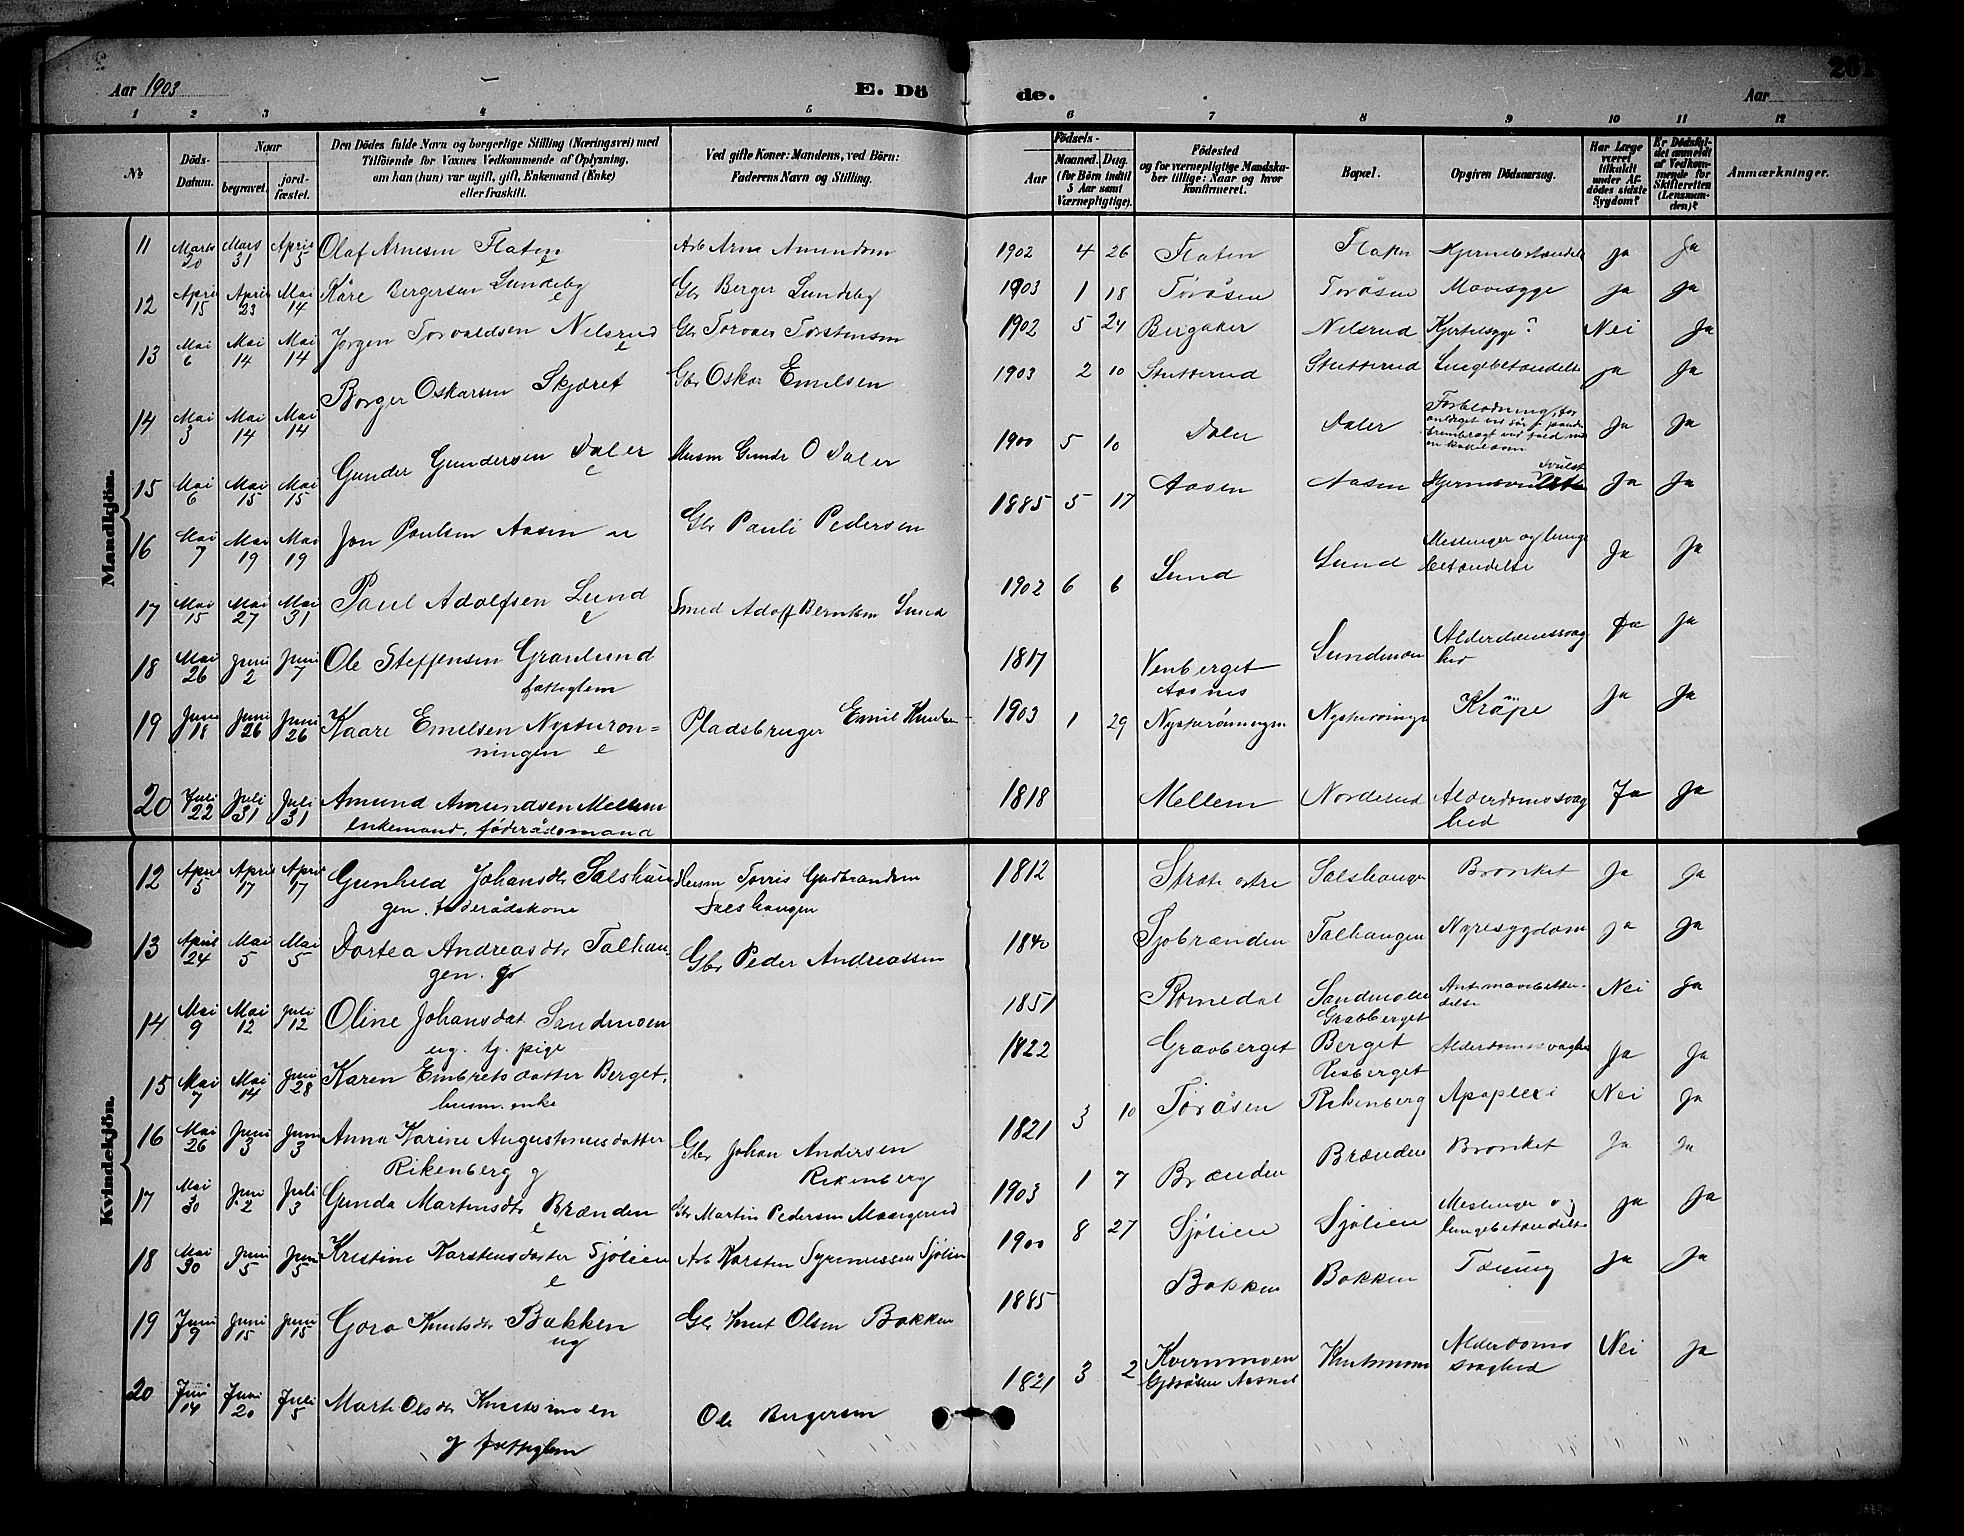 Aar 1903
E. Dö
de.
Aar
261
1 2 3 4 5 6 7 8 9 10 11 12
№
Döds-Datum.
Naar
begravet.
jord-fæstet.
Den Dödes fulde Navn og borgerlige Stilling (Næringsvei) med
Tilföiende for Voxnes Vedkommende af Oplysning,
om han (hun) var ugift, gift, Enkemand (Enke)
eller fraskilt.
Ved gifte Koner: Mandens, ved Börn:
Faderens Navn og Stilling.
Födsels-
Aar
Maaned. Dag.
(for Börn indtil
5 Aar samt
Værnepligtige).
Födested
og for værnepligtige Mandska-
ber tillige: Naar og hvor
konfirmeret.
Bopæl.
Opgiven Dödsaarsag.
Har Læge
været
tilkaldt
under Af-
dödes sidste
Sygdom?
Er Dödsfal-
det anmeldt
af Vedkom-
mende for
Skifteretten
(Lensman-
den)?
Anmærkninger.
Mandkjön.
11 Marts 20 Mars 31 April 5 Olaf Arnesen Flaten e Arb Arne Amundsen 1902 4 26 Flaten Flaten Hjernebetændelse ja ja
12 April 15 April 23 Mai 14 Kåre Bergersen Lundeby e Gbr Berger Lundeby 1903 1 18 Toråsen Toråsen Mavesyge ja ja
13 Mai 6 Mai 14 Mai 14 Jørgen Torvaldsen Nilsrud e Gbr Torvald Torstensen 1902 5 24 Bergaker Nilsrud Kjertelsyge? Nei Ja
14 Mai 3 Mai 14 Mai 14 Borger Oskarsen Skjæret Gbr Oskar Emilsen 1903 2 10 Stutterud Stutterud Lungebetændelse ja Ja
15 Mai 6 Mai 15 Mai 15 Gunder Gundersen Daler e Husm Gundr O Daler 1900 5 10 Daler Daler Forblødning, Ja Ja
16 Mai 7 Mai 19 Mai 19 Jon Paulsen Aasen u Gbr Pauli Pedersen 1885 5 17 Aasen Aasen Hjernesvulst Ja Ja
17 Mai 15 Mai 27 Mai 31 Paul Adolfsen Lund e Smed Adolf Berntsen Lund 1902 6 6 Lund Lund Meslinger og lunge
betændelse Ja Ja
18 Mai 26 Juni 2 Juni 7 Ole Steffensen Granlund
fattiglem 1817 Venberget
Aasnes Sundmoen Alderdomssvag
hed Ja Ja
19 Juni 18 Juni 26 Juni 26 Kaare Emilsen Nysturøn=
ningen e Pladsbruger Emil Knutsen 1903 1 29 Nysturønningen Kråpe Ja Ja
20 Juli 22 Juli 31 Juli 31 Amund Amundsen Mellem
enkemand, føderådsmand 1818 Mellem Norderud Alderdomssvag
hed Ja Ja
Kvindekjön.
12 April 5 April 17 April 17 Gunhild Johansdtr Salshau
gen. føderådskone Husm Torris Gudbrandsen
Salshaugen 1812 Stræte østre Salshaugen Bronket Ja Ja
13 April 24 Mai 5 Mai 5 Dortea Andreasdtr Talhau-
gen. g Gbr Peder Andreassen 1840 Sjobrænden Talhaugen Nyresygdom ja Ja
14 Mai 9 Mai 12 Juli 12 Oline Johansdat Sandmoen
ug. tj. pige 1851 Romedal Sandmoen
Gravberget Nei Ja
15 Mai 7 Mai 14 Juni 28 Karen Embretsdatter Berget.
husm. enke 1822 Gravberget Berget
Risberget Alderdomssvaghed Ja Ja
16 Mai 26 Juni 3 Juni 3 Anna Karine Augustinusdatter
Rikenberg g Gbr Johan Andersen
Rikenberg 1821 3 10 Toråsen Rikenberg Apoplexi Nei Ja
17 Mai 30 Juni 2 Juli 3 Gunda Martinsdtr Brænden
e Gbr Martin Pedersen Maagerud 1903 1 7 Brænden Brænden Bronket Ja Ja
18 Mai 30 Juni 5 Juni 5 Kristine Karstensdatter Sjølien
e Arb Karsten Syrinussen Sjølien 1900 8 27 Sjølien Sjølien Meslinger og
lungebetændelse ja Ja
19 Juni 9 Juni 15 Juni 15 Goro Knutsdtr Bakken
ug Gbr Knut Olsen Bakken 1885 Bakken Bakken Tæring Ja Ja
20 Juni 14 Juni 20 Juli 5 Marte Olsdtr Knutsmoen
g fattiglem Ole Bergersen 1821 3 2 Kvernmoen
Gjæsåsen Aasnes Knutsmoen Alderdoms
svaghed Nei Ja